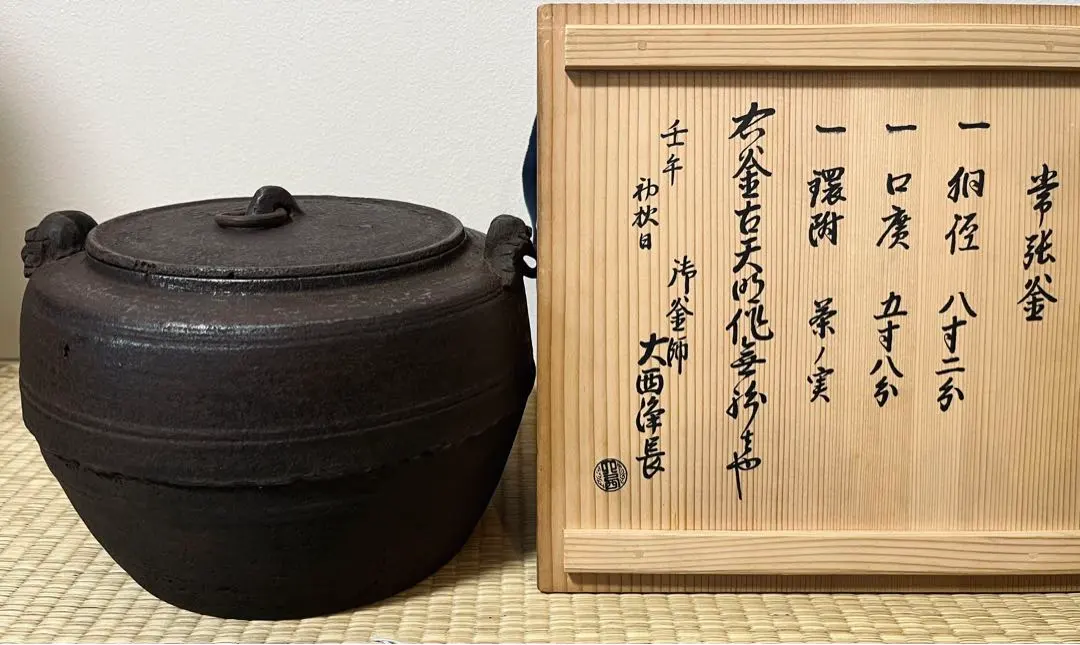 常張釜
一 胴径 八寸二分
一 口廣 五寸八分
一 鐶附 茶ノ実
右釜古天明作無紛者也
壬午
初秋日
御釜師
大西淨長